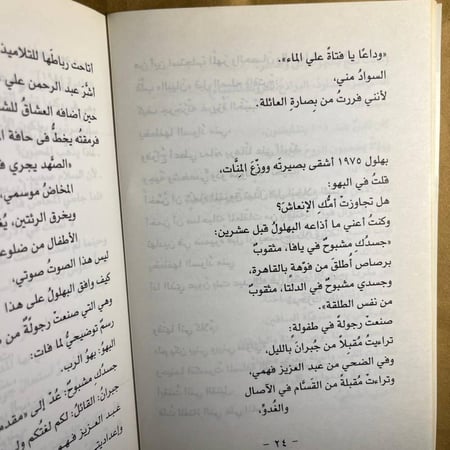 «وداعًا يا فتاةُ علي الماء».
السوادُ مني،
لأنني فررتُ من بِصارةِ العائلة.
بهلول ١٩٧٥ أشقى بصيرتَه ووزّعَ المِنَّات،
قلتُ في البهو:
هل تجاوزتْ أمُّك الإنعاشَ؟
وكنتُ أعني ما أذاعه البهلولُ قبل عشرين:
«جسدُك مشبوحٌ في يافا، مثقوبٌ
برصاصٍ أُطلقَ من فوّهةٍ بالقاهرة،
وجسدي مشبوحٌ في الدلتا، مثقوبٌ
من نفس الطلقة».
صنعتْ رجولةً في طفولة:
تراءيتُ مُقبِلاً من جُبرانَ بالليل،
وفي الضحي من عبد العزيز فهمي.
وتراءتْ مُقبلةً من القسَّام في الآصال
والغُدوِّ،
– ٢٤ –
اتاحت رباطَها للتلاميذ
انشُرْ عبد الرحمن علي
حين أضافه العشاقُ للشا
فرمقتُه يخطُّ في حافة ا
«الصَّهد يجري ف
المخاضُ موسمي،
ويخرق الرئتين، يُ
الأطفال من ضلوعـ
ليس هذا الصوتُ صوتي،
كيف وافق البهلولُ على هذا
وهي التي صنعت رجولةً م
رسمٌ توضيحيٌّ لما فات:
البهوُ: بهوُ الرب.
جسدُك مشبوحٌ: عُدْ إلى «مقدمـ
جبرانُ: القائلُ: لكم لغتُكم ولي
عبد العزيز فهمي